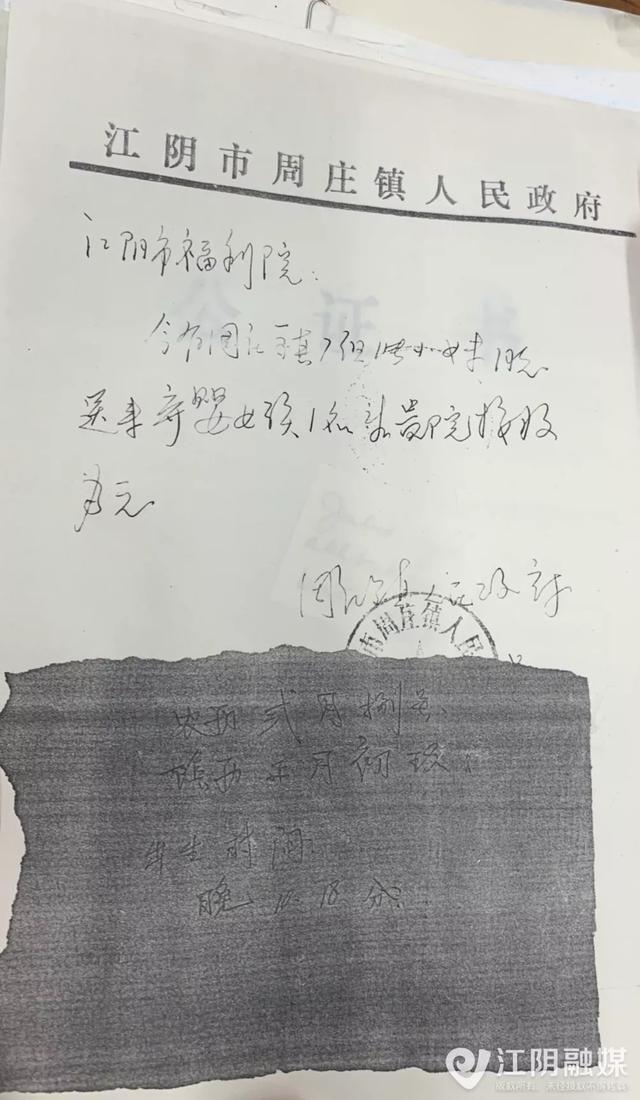 江阴市周庄镇人民政府
江阴市福利院:
今有周庄镇
送来弃婴女孩1名 贵院接收
为
周庄镇人民政府
市周庄镇人民
农历 弍月捌号
月初
牛生时间:
晚 18分
江阴融媒
版权所有,未经授权不得转载